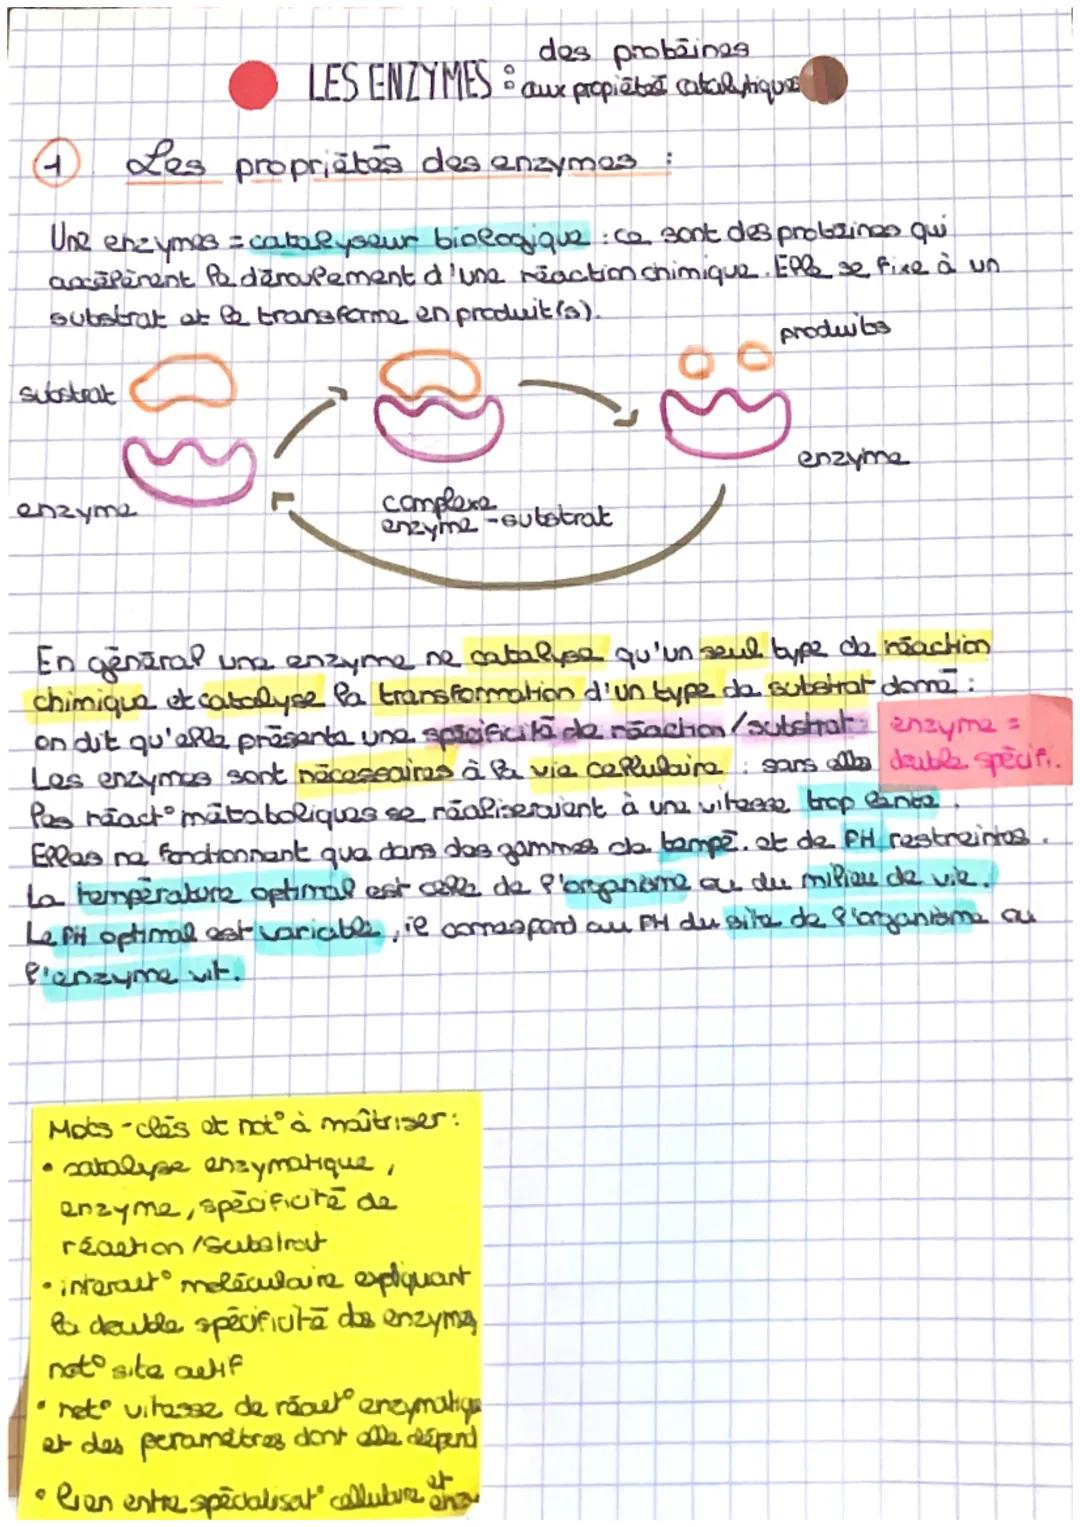 des protéines
LES ENZYMES : aux propiétés catalytiques
1 Les propriétés des enzymes :
Une enzymes = catalyseur biologique : ce sont des protéines qui
accélèrent le déroulement d'une réaction chimique. Elle se fixe à un
substrat et le transforme en produit(s).
produits
substrat
enzyme
enzyme
complexe
enzyme - substrat
En général une enzyme ne catalyse qu'un seul type de réaction
chimique et catalyse la transformation d'un type de substrat donné :
on dit qu'elle présente une spécificité de réaction / substrat
enzyme =
double spécifi.
Les enzymes sont nécessaires à la vie cellulaire : sans elles
les réact° métaboliques se réaliseraient à une vitesse trop lente.
Elles ne fonctionnent que dans des gammes de tempé. et de PH restreintes.
La température optimal est celle de l'organisme ou du milieu de vie.
Le PH optimal est variable, il correspond au PH du site de l'organisme ou
l'enzyme vit.
Mots-clés et not° à maîtriser :
• catalyse enzymatique,
enzyme, spécificité de
réaction / Substrat
• interact° moléculaire expliquant
la double spécificité des enzymes
not° site actif
• not° vitesse de réact° enzymatique
et des paramètres dont elle dépend
• lien entre spécialisat° cellulaire et
enz